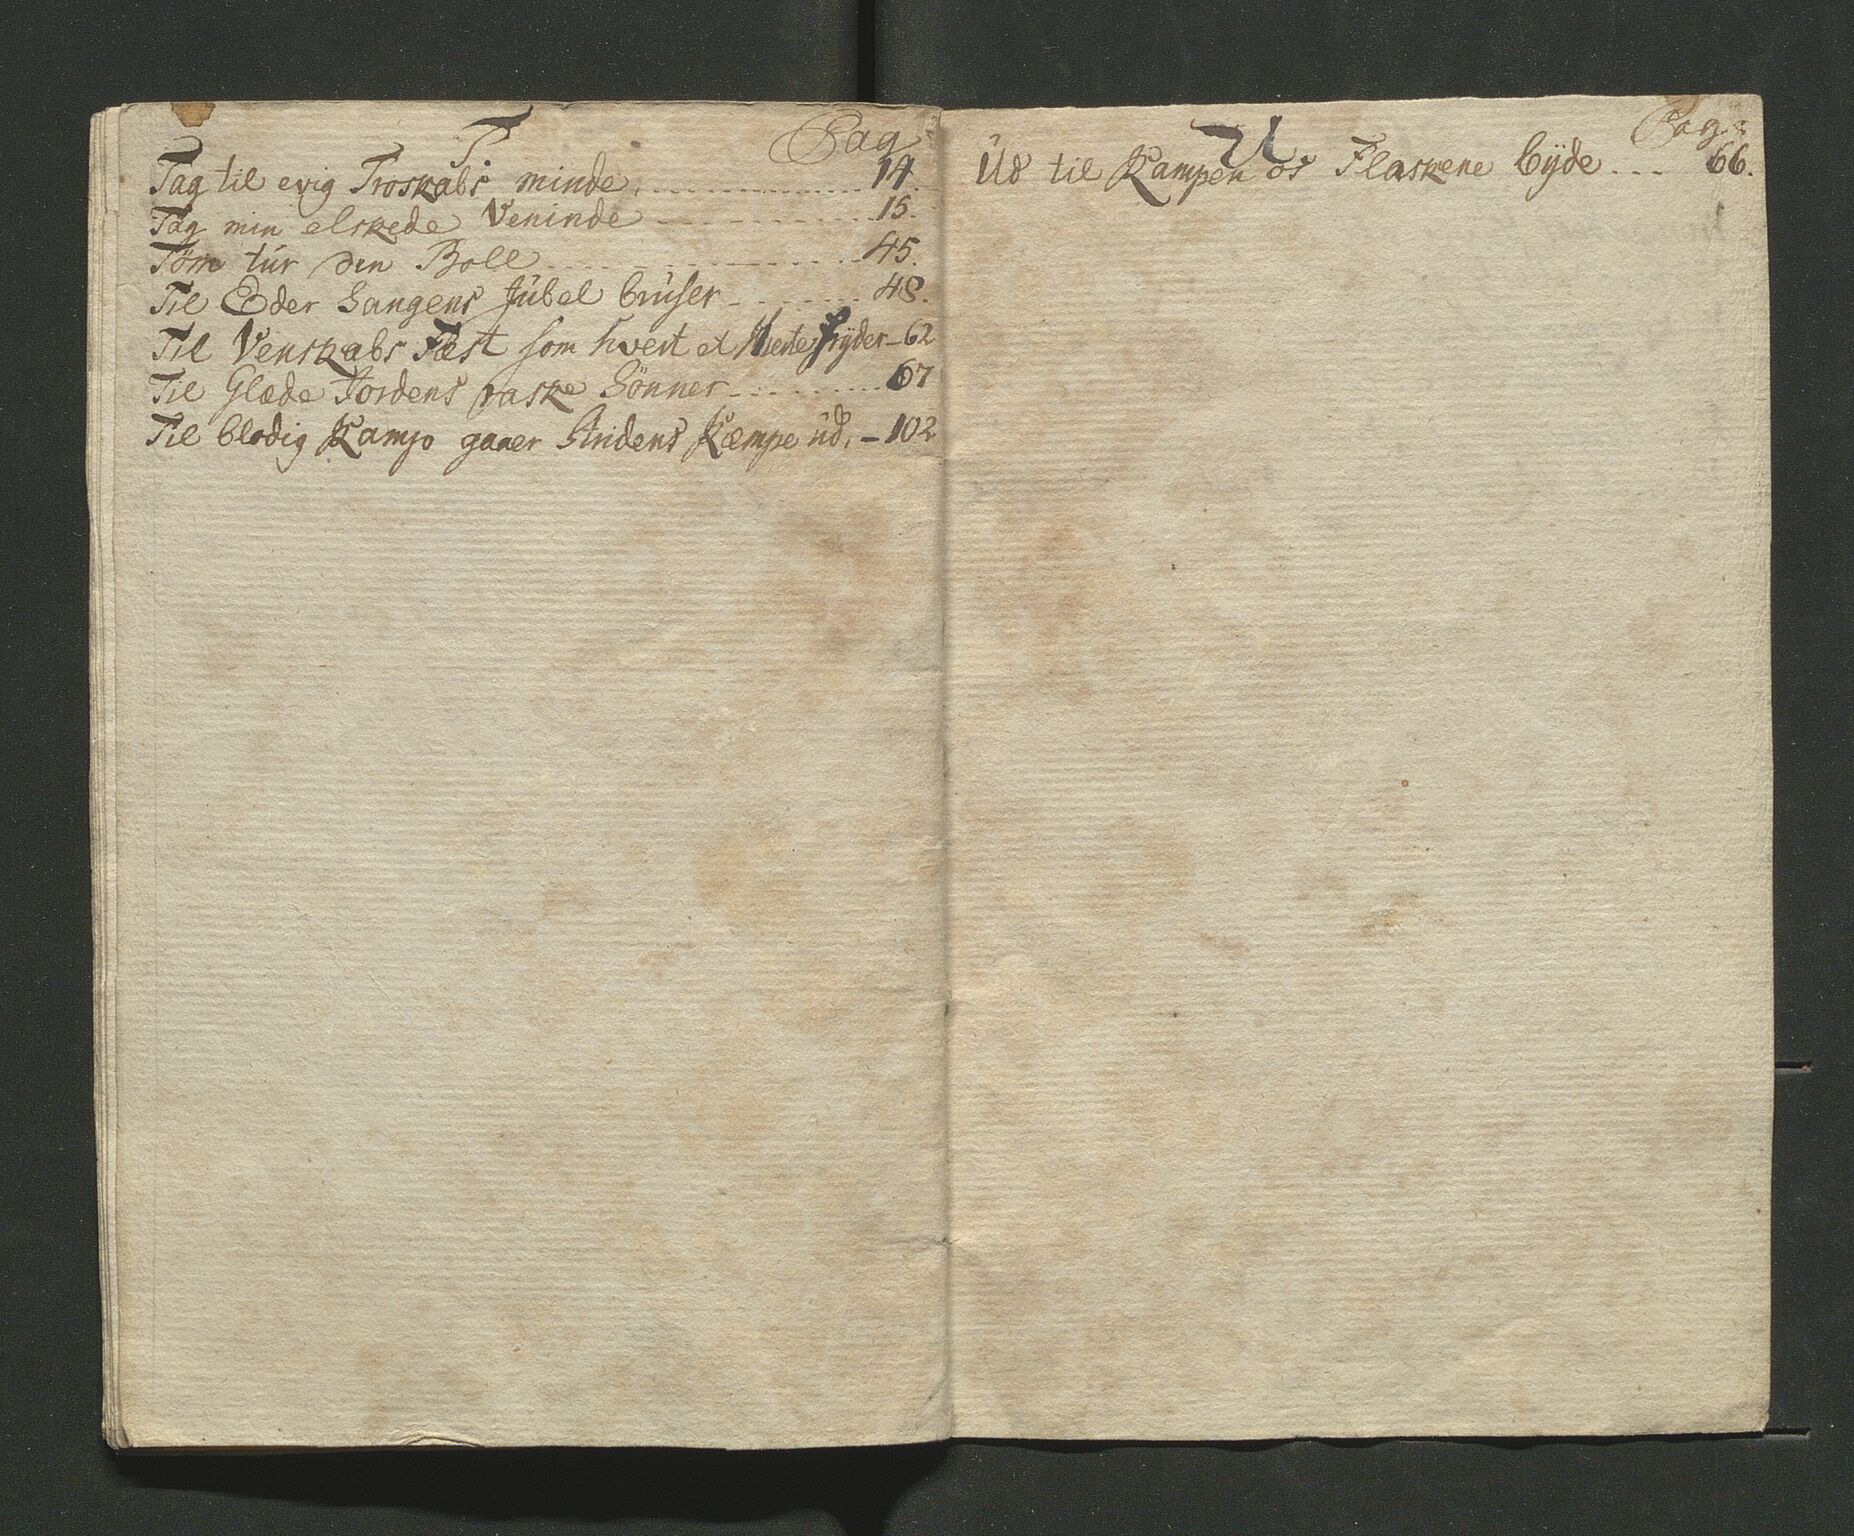 T
Pag:
Tag til evig Troskabs minde. 14.
Tag min elskede Veninde 15.
Tøm tür den Boll 45.
Til Eder Sangens Jübel brüser 48.
Til Venskabs Fæst som hvert et Hierte fryder 62
Til Glæde Jordens raske Sönner 67
Til blodig Kamp gaaer Kæmpe üd. 102
U
Pag:
Üd til Kampen os Flaskene byde 66.